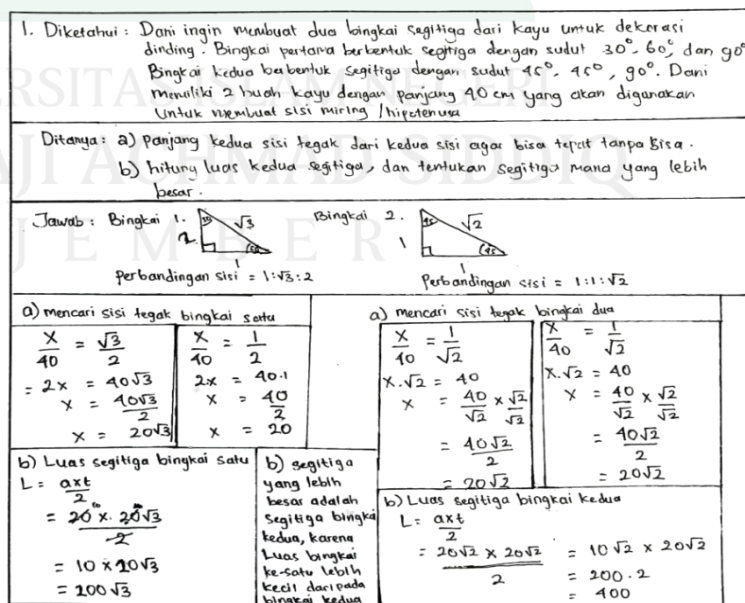 1. Diketahui : Dani ingin membuat dua bingkai segitiga dari kayu untuk dekorasi
dinding. Bingkai pertama berbentuk segitiga dengan sudut 30°, 60°, dan 90°
Bingkai kedua berbentuk segitiga dengan sudut 45°, 45°, 90°. Dani
memiliki 2 buah kayu dengan panjang 40 cm yang akan digunakan
untuk membuat sisi miring / hipotenusa
Ditanya : a) Panjang kedua sisi tegak dari kedua sisi agar bisa tepat tanpa sisa.
b) hitung luas kedua segitiga, dan tentukan segitiga mana yang lebih
besar.
Jawab : Bingkai 1.
30
√3
2
60
1
Perbandingan sisi = 1:√3:2
Bingkai 2.
45
√2
1
45
1
Perbandingan sisi = 1:1:√2
a) mencari sisi tegak bingkai satu
x/40 = √3/2
= 2x = 40√3
x = 40√3/2
x = 20√3
x/40 = 1/2
2x = 40.1
x = 40/2
x = 20
a) mencari sisi tegak bingkai dua
x/40 = 1/√2
x.√2 = 40
x = 40/√2 × √2/√2
= 40√2/2
= 20√2
x/40 = 1/√2
x.√2 = 40
x = 40/√2 × √2/√2
= 40√2/2
= 20√2
b) Luas segitiga bingkai satu
L = axt/2
= 20 × 20√3/2
= 10 × 20√3
= 200√3
b) segitiga
yang lebih
besar adalah
segitiga bingkai
kedua, karena
Luas bingkai
ke-satu lebih
kecil daripada
bingkai kedua
b) Luas segitiga bingkai kedua
L = axt/2
= 20√2 × 20√2/2
= 10√2 × 20√2
= 200.2
= 400